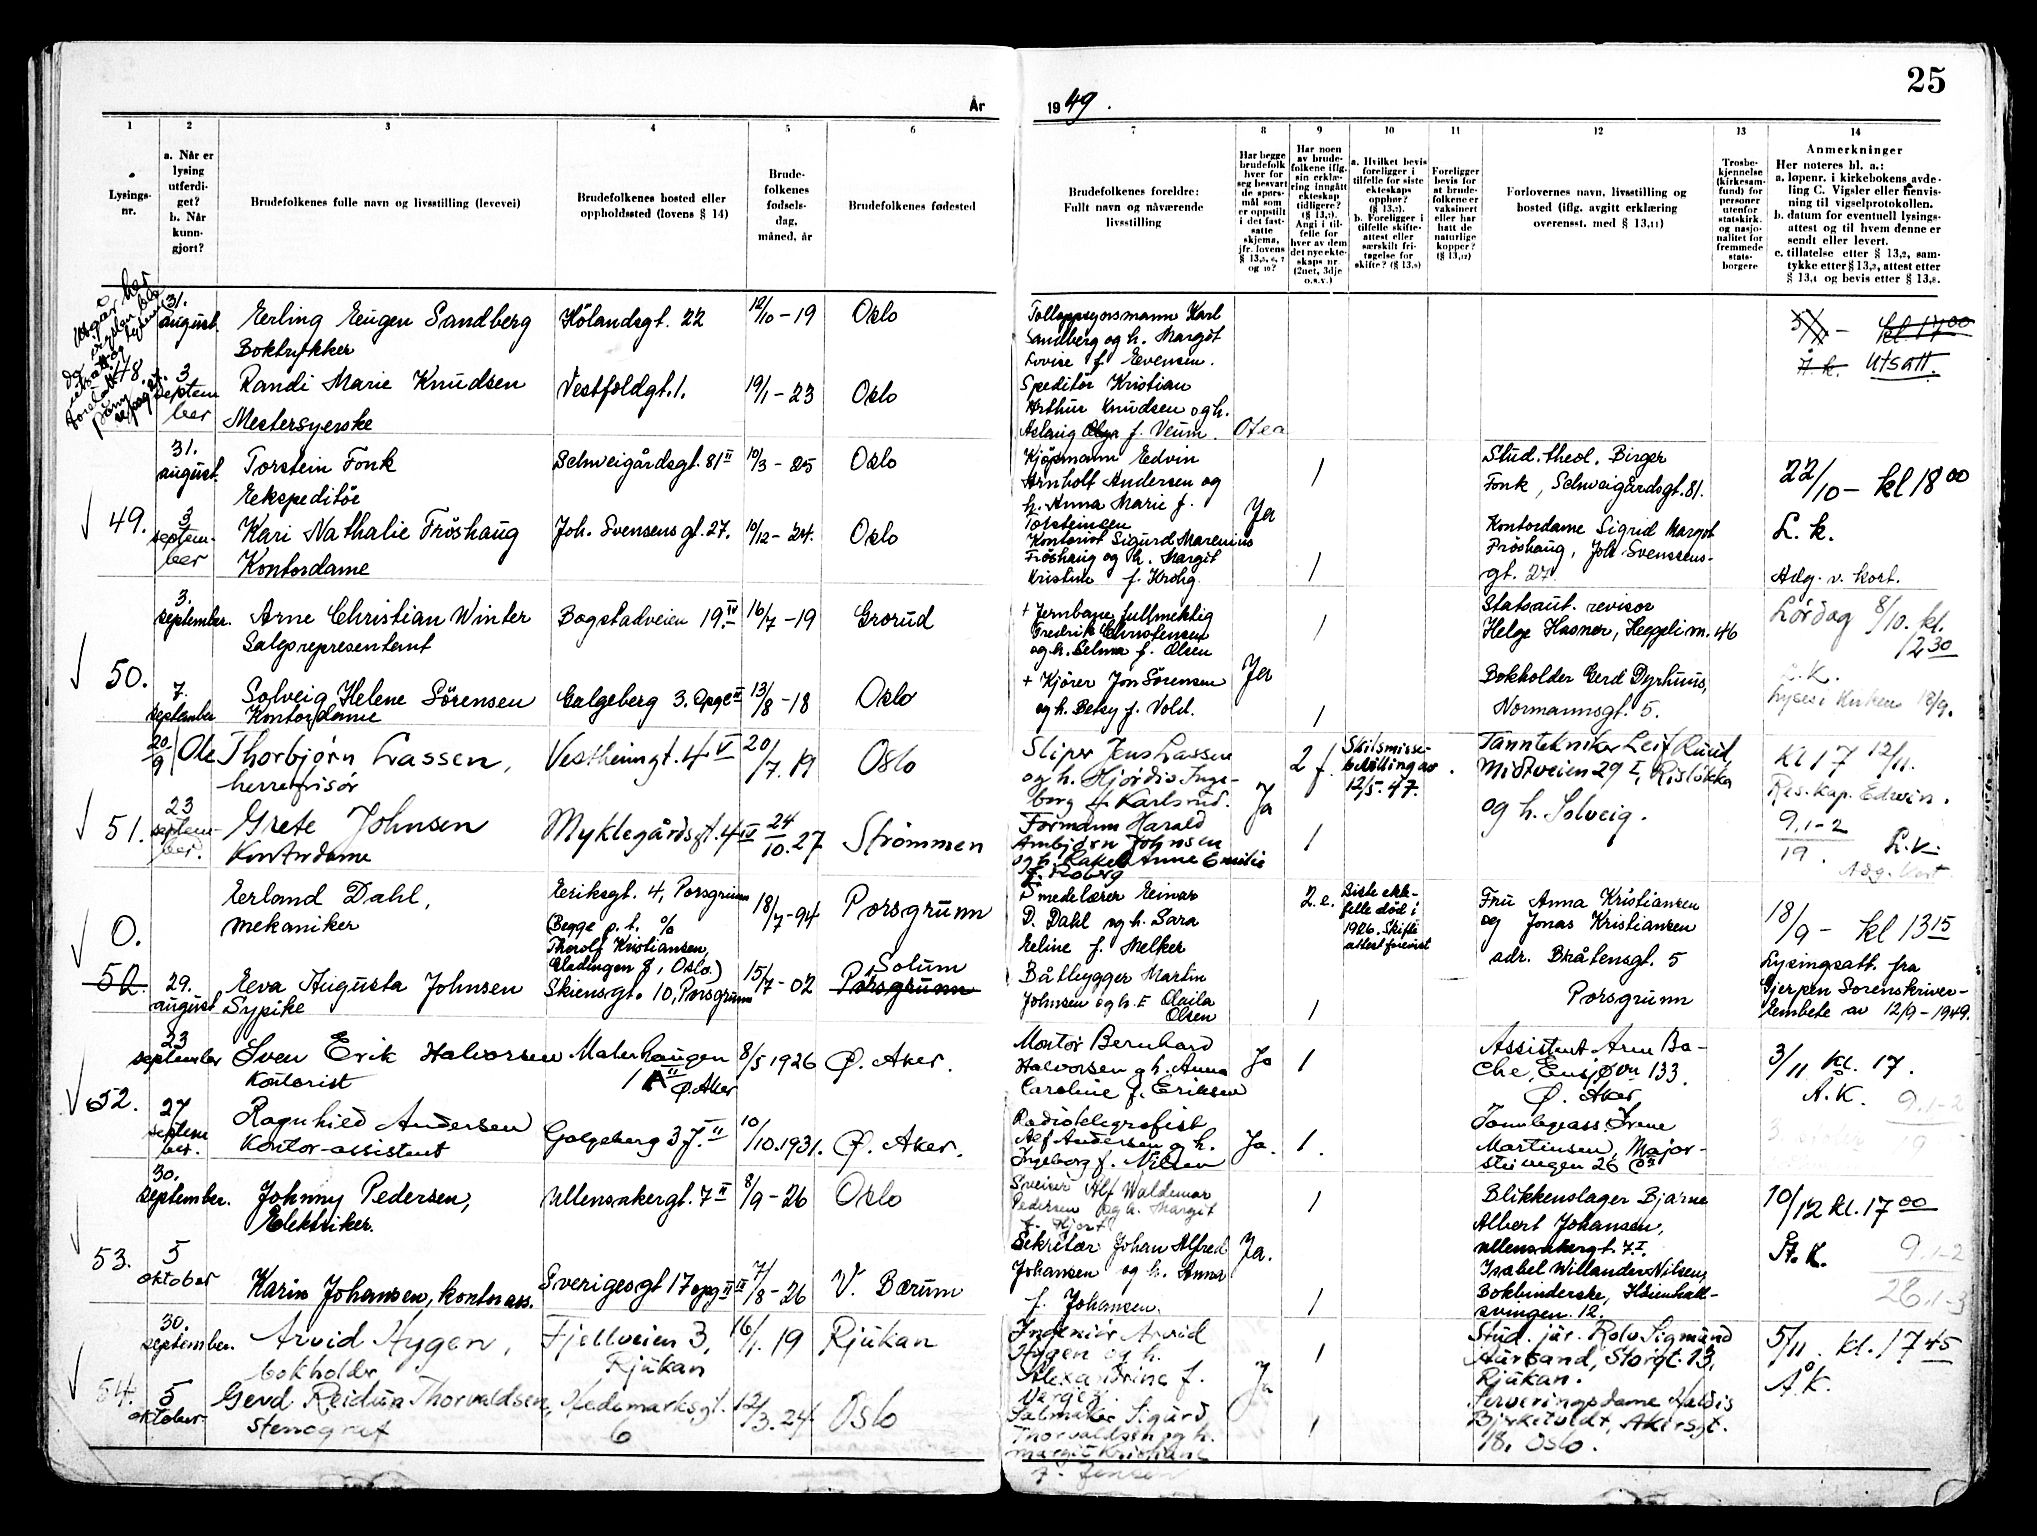 25
År 1949.
1 2 3 4 5 6 7 8 9 10 11 12 13 14
Lysings-
nr.
a. Når er
lysing
utferdi-
get?
b. Når
kunn-
gjort?
Brudefolkenes fulle navn og livsstilling (levevei)
Brudefolkenes bosted eller
oppholdssted (lovens § 14)
Brude-
folkenes
fødsels-
dag,
måned, år
Brudefolkenes fødested
Brudefolkenes foreldre:
Fullt navn og nåværende
livsstilling
Har begge
brudefolk
hver for
seg besvart
de spørs-
mål som
er oppstilt
i det fast-
satte
skjema,
jfr. lovens
§ 13,5, 6, 7
og 10?
Har noen
av brude-
folkene iflg.
sin erklæ-
ring inngått
ekteskap
tidligere?
(§ 13,7).
Angi i til-
felle for
hver av dem
det nye ekte-
skaps nr
(2net, 3dje
o.s.v.)
a. Hvilket bevis
foreligger i
tilfelle for siste
ekteskaps
opphør?
(§ 13,7)
b. Foreligger i
tilfelle skifte-
attest eller
særskilt fri-
tagelse for
skifte? (§ 13,8)
Foreligger
bevis for
at brude-
folkene er
vaksinert
eller har
hatt de
naturlige
kopper?
(§ 13,12)
Forlovernes navn, livsstilling og
bosted (iflg. avgitt erklæring
overensst. med § 13,11)
Trosbe-
kjennelse
(kirkesam-
fund) for
personer
utenfor
statskirk.
og nasjo-
nalitet for
fremmede
stats-
borgere
Anmerkninger
Her noteres bl. a.:
a. løpenr. i kirkebokens avde-
ling C. Vigsler eller henvis-
ning til vigselprotokollen.
b. datum for eventuell lysings-
attest og til hvem denne er
sendt eller levert.
c. tillatelse etter § 13,2, sam-
tykke etter § 13,3, attest etter
§ 13,4 og bevis etter § 13,8.
31.
august
Erling Eugen Sandberg
Boktrykker
Hölandsgt. 22
12/10 - 19
Oslo
Tolloppsynsmann Karl
Sandberg og h. Margit
Lovise f. Evensen.
kl 17 00
utsatt.
3
septem
ber
Randi Marie Knudsen
Mestersyerske
Vestfoldgt. 1.
19/1 - 23
Oslo
Speditör Kristian
Arthur Knudsen og h.
Aslaug Olga f. Veum.
31.
august
Torstein Fonk
Ekspeditör
Schweigårdsgt. 81 II
10/3 - 25
Oslo
Kjöpmann Edvin
Arnholt Andersen og
h. Anna Marie f.
Torsteinsen
Ja
1
Stud. theol. Birger
Fonk, Schweigårdsgt. 81.
22/10 - kl 18 00
49.
3
septem-
ber
Kari Nathalie Fröshaug
Kontordame
Joh. Svensens gt. 27.
10/12 - 24.
Oslo
Kontorist Sigurd Marenius
Fröshaug og h. Margit
Kristine f. Krohg
1
Kontordame Sigrid Margot
Fröshaug, Joh. Svensens-
gt. 27
L. k.
Adg. v. kort.
3.
september.
Arne Christian Winter
Salgsrepresentant
Bogstadveien 19. IV
16/7 - 19
Grorud
+ Jernbanefullmektig
Fredrik Christensen
og h. Selma f. Olsen
Ja
1
Statsaut. revisor
Helge Hasner, Heggeli m. 46
Lördag 8/10. kl.
12 30
50.
7.
september
Solveig Helene Sörensen
Kontordame
Galgeberg 3. Oppg. II
13/8 - 18
Oslo
+ Kjörer Jon Sörensen
og h. Betsy f. Vold.
1
Bokholder Gerd Dyrhuus,
Normannsgt. 5.
L. K.
Lyses i Kirken 18/9.
20/9
Ole Thorbjørn Lassen,
herrefrisør
Vestheimgt. 4 V
20/7. 19
Oslo
Sliper Jens Lassen
og h. Hjørdis Inge-
borg f. Karlsrud.
Ja
2 f.
Skilsmisse-
bevilling av
12/5. 47.
Tanntekniker Leif Ruud,
Midtveien 29 I, Risløkka
og h. Solveig.
kl 17 12/11.
Res. kap. Edwin.
51.
23
septem-
ber.
Grete Johnsen
Kontordame
Myklegårdsgt. 4 IV
24/10. 27
Strømmen
Formann Harald
Ambjørn Johnsen
og h. Rakel Anne Emilie
f. Roberg
1
9.1-2
19.
L.k.
Adg. kort
Erland Dahl,
mekaniker
Eriksgt. 4, Porsgrunn
(Begge p. t. %
Thorolf Kristiansen,
Eladingen 8, Oslo.)
18/7 - 94
Porsgrunn
Smedelærer Einar
D. Dahl og h. Sara
Eline f. Melker
2. e.
Siste ekt-
felle död i
1926. Skifte
attest fremvist
Fru Anna Kristiansen
og Jonas Kristiansen
adr. Bråtensgt. 5
Porsgrunn
18/9 - kl 13 15
0.
52.
29.
august
Eva Augusta Johnsen
Sypike
Skiensgt. 10, Porsgrunn
15/7 - 02
Solum
Porsgrunn
Båtbygger Martin
Johnsen og h. E Olaila
Olsen
1
Lysingsatt. fra
Gjerpen Sorenskriver-
Embete av 12/9 - 1949.
23
september
Sven Erik Halvorsen
Kontorist
Malerhaugen
1 A II Ø. Aker
8/5 1926
Ø. Aker.
Montør Bernhard
Halvorsen og h. Anna
Caroline f. Eriksen
Ja
1
Assistent Arne Ba-
che, Ensjøvn 133.
Ø. Aker
3/11 kl. 17.
Å.K.
52.
27
septem
ber.
Ragnhild Andersen
Kontor-assistent
Galgeberg 3 J. II
10/10. 1931.
Ø. Aker.
Radiotelegrafist
Alf Andersen og h.
Ingeborg f. Nilsen
Ja.
1.
Tannlegeass. Irene
Martinsen, Major-
stuvegen 26
9.1-2
19
30.
september.
Johnny Pedersen,
Elektriker.
Ullensakergt. 7 II
8/9 - 26
Oslo
Sveiser Alf Waldemar
Pedersen og h. Margit
f. Hjort
Ja.
1
Blikkenslager Bjarne
Albert Johansen,
Ullensakergt. 7 I.
10/12 kl. 17 00
53.
5
oktober
Karin Johansen, kontorass.
Sverigesgt 17 opg II III
7/8 - 26
V. Bærum
Sekretær Johan Alfred
Johansen og h. Anna
f. Johansen.
1
Isabel Willander Nilsen,
Bokbinderske,
svingen 12.
St. K.
9.1-2
26.1-3
30.
september.
Arvid Hygen,
bokholder
Fjellveien 3,
Rjukan
16/1. 19
Rjukan
Ingeniør Arvid
Hygen og h.
Alexandrine f.
Ja
1
Stud. jur. Rolv Sigmund
Aursand, Storgt. 13,
Rjukan.
5/11. kl. 17 45
Å.K.
54.
5
oktober
Gerd Reidun Thorvaldsen,
stenograf
Hedemarksgt.
6
12/3. 24
Oslo
Salmaker Sigurd
Thorvaldsen og h.
Margit Kristiane
f. Jensen
1
Serveringsdame Haldis
Bjrketvedt, Akersgt.
18. Oslo.